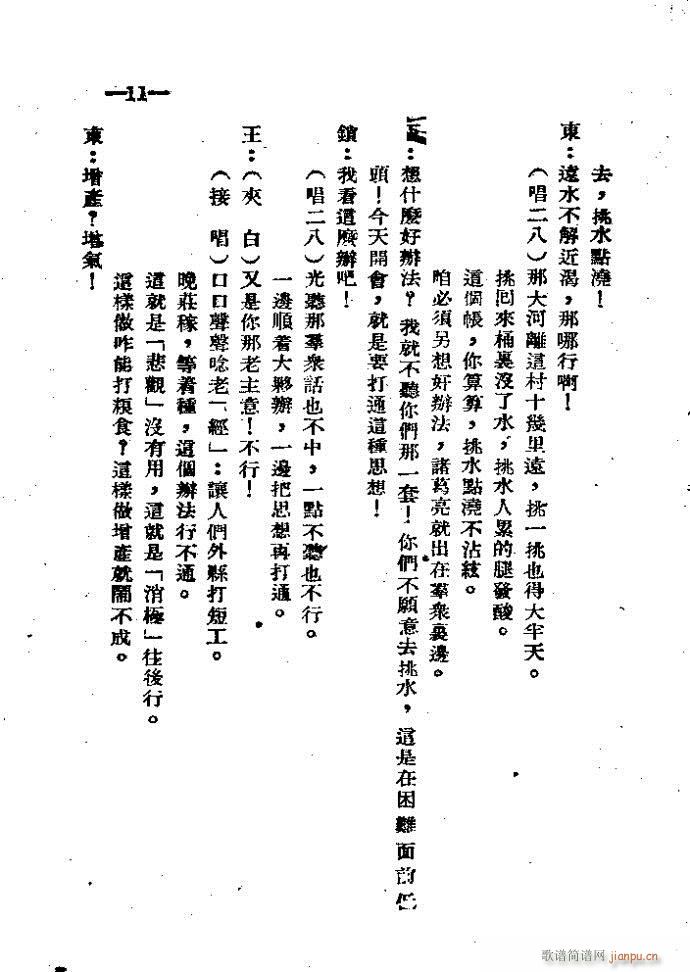 —11—
去，挑水點澆！
東：遠水不解近渴，那哪行啊！
（唱二八）那大河離這村十幾里遠，挑一挑也得大半天。
挑回來桶裏沒了水，挑水人累的腿發酸。
這個帳，你算算，挑水點澆不沾絃。
咱必須另想好辦法，諸葛亮就出在羣衆裏邊。
王：想什麼好辦法？我就不聽你們那一套！你們不願意去挑水，這是在困難面前低
頭！今天開會，就是要打通這種思想！
鎖：我看這麼辦吧！
（唱二八）光聽那羣衆話也不中，一點不聽也不行。
一邊順着大夥辦，一邊把思想再打通。
王：（夾白）又是你那老主意！不行！
（接唱）口口聲聲唸老「經」：讓人們外縣打短工。
晚莊稼，等着種，這個辦法行不通。
這就是「悲觀」沒有用，這就是「消極」往後行。
這樣做咋能打粮食？這樣做增產就鬧不成。
東：增產？增氣！
歌谱简谱网 jianpu.cn